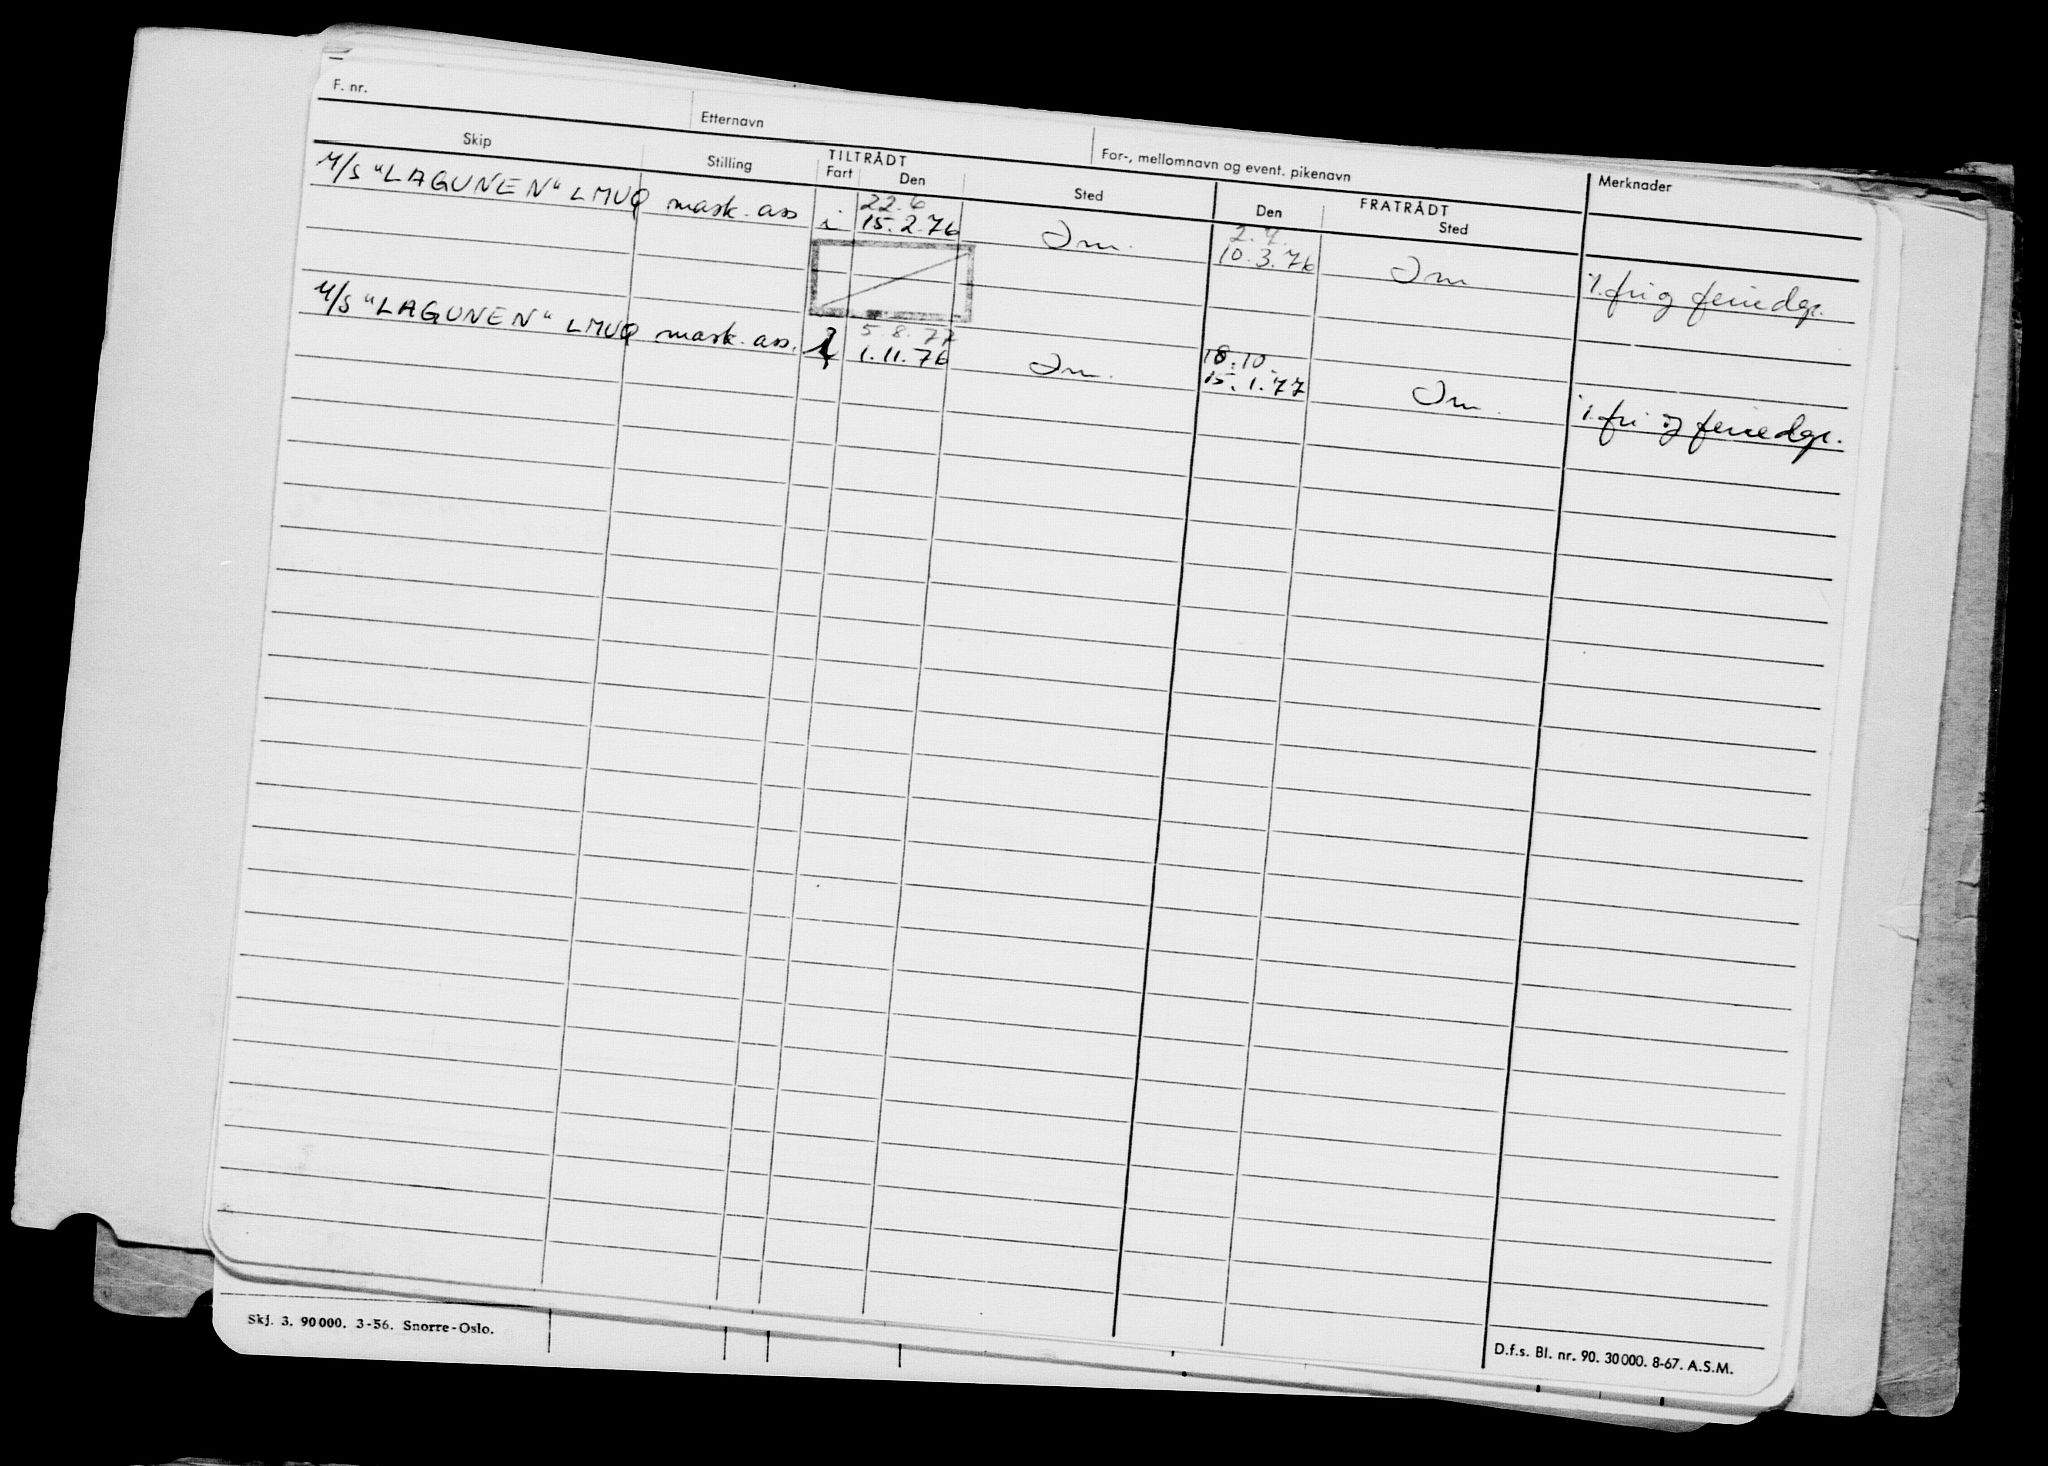 F. nr.
Etternavn
For-, mellomnavn og event. pikenavn
Merknader
Skip
Stilling
TILTRÅDT
Fart
Den
Sted
FRATRÅDT
Den
Sted
22.6
2.7.
M/S "LAGUNEN" LMUQ mask. ass i 15.2.76 Jm. 10.3.76 Jm /. fri og feriedgr.
5.8.77
18.10.
M/S "LAGUNEN" LMUQ mask. ass. 1.11.76 Jm. 15.1.77 Jm. /. fri og feriedgr.
Skj. 3. 90000. 3-56. Snorre-Oslo.
D.f.s. Bl. nr. 90. 30000. 8-67. A.S.M.